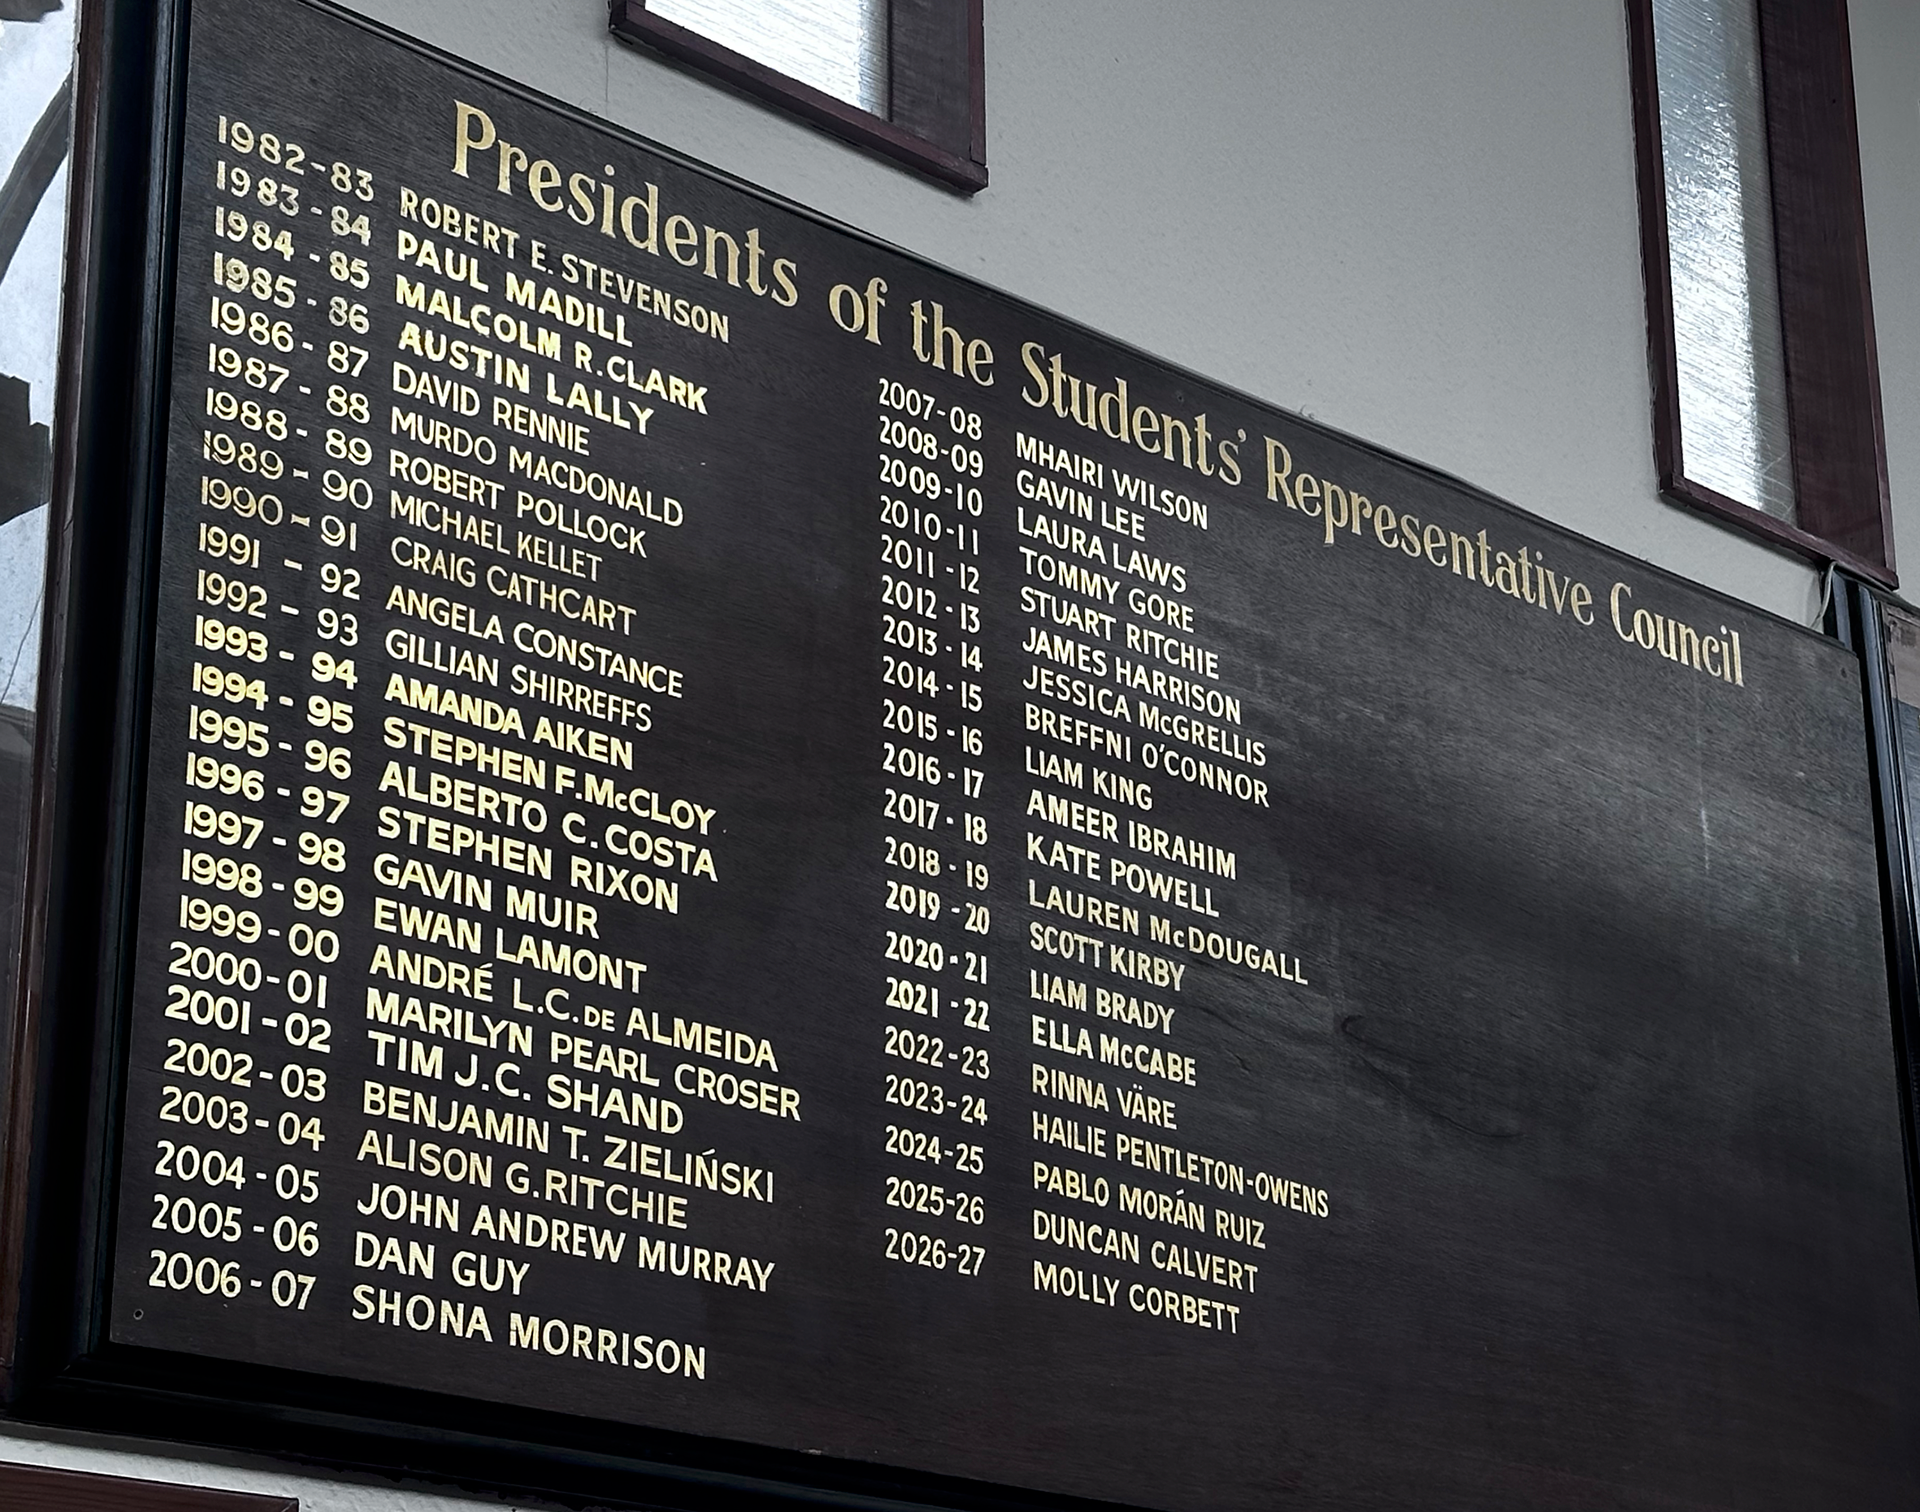 Presidents of the Students' Representative Council
1982-83 ROBERT E. STEVENSON
1983-84 PAUL MADILL
1984-85 MALCOLM R. CLARK
1985-86 AUSTIN LALLY
1986-87 DAVID RENNIE
1987-88 MURDO MACDONALD
1988-89 ROBERT POLLOCK
1989-90 MICHAEL KELLET
1990-91 CRAIG CATHCART
1991-92 ANGELA CONSTANCE
1992-93 GILLIAN SHIRREFFS
1993-94 AMANDA AIKEN
1994-95 STEPHEN F. McCLOY
1995-96 ALBERTO C. COSTA
1996-97 STEPHEN RIXON
1997-98 GAVIN MUIR
1998-99 EWAN LAMONT
1999-00 ANDRÉ L.C. DE ALMEIDA
2000-01 MARILYN PEARL CROSER
2001-02 TIM J.C. SHAND
2002-03 BENJAMIN T. ZIELIŃSKI
2003-04 ALISON G. RITCHIE
2004-05 JOHN ANDREW MURRAY
2005-06 DAN GUY
2006-07 SHONA MORRISON
2007-08 MHAIRI WILSON
2008-09 GAVIN LEE
2009-10 LAURA LAWS
2010-11 TOMMY GORE
2011-12 STUART RITCHIE
2012-13 JAMES HARRISON
2013-14 JESSICA McGRELLIS
2014-15 BREFFNI O'CONNOR
2015-16 LIAM KING
2016-17 AMEER IBRAHIM
2017-18 KATE POWELL
2018-19 LAUREN McDOUGALL
2019-20 SCOTT KIRBY
2020-21 LIAM BRADY
2021-22 ELLA McCABE
2022-23 RINNA VÄRE
2023-24 HAILIE PENTLETON-OWENS
2024-25 PABLO MORÁN RUIZ
2025-26 DUNCAN CALVERT
2026-27 MOLLY CORBETT